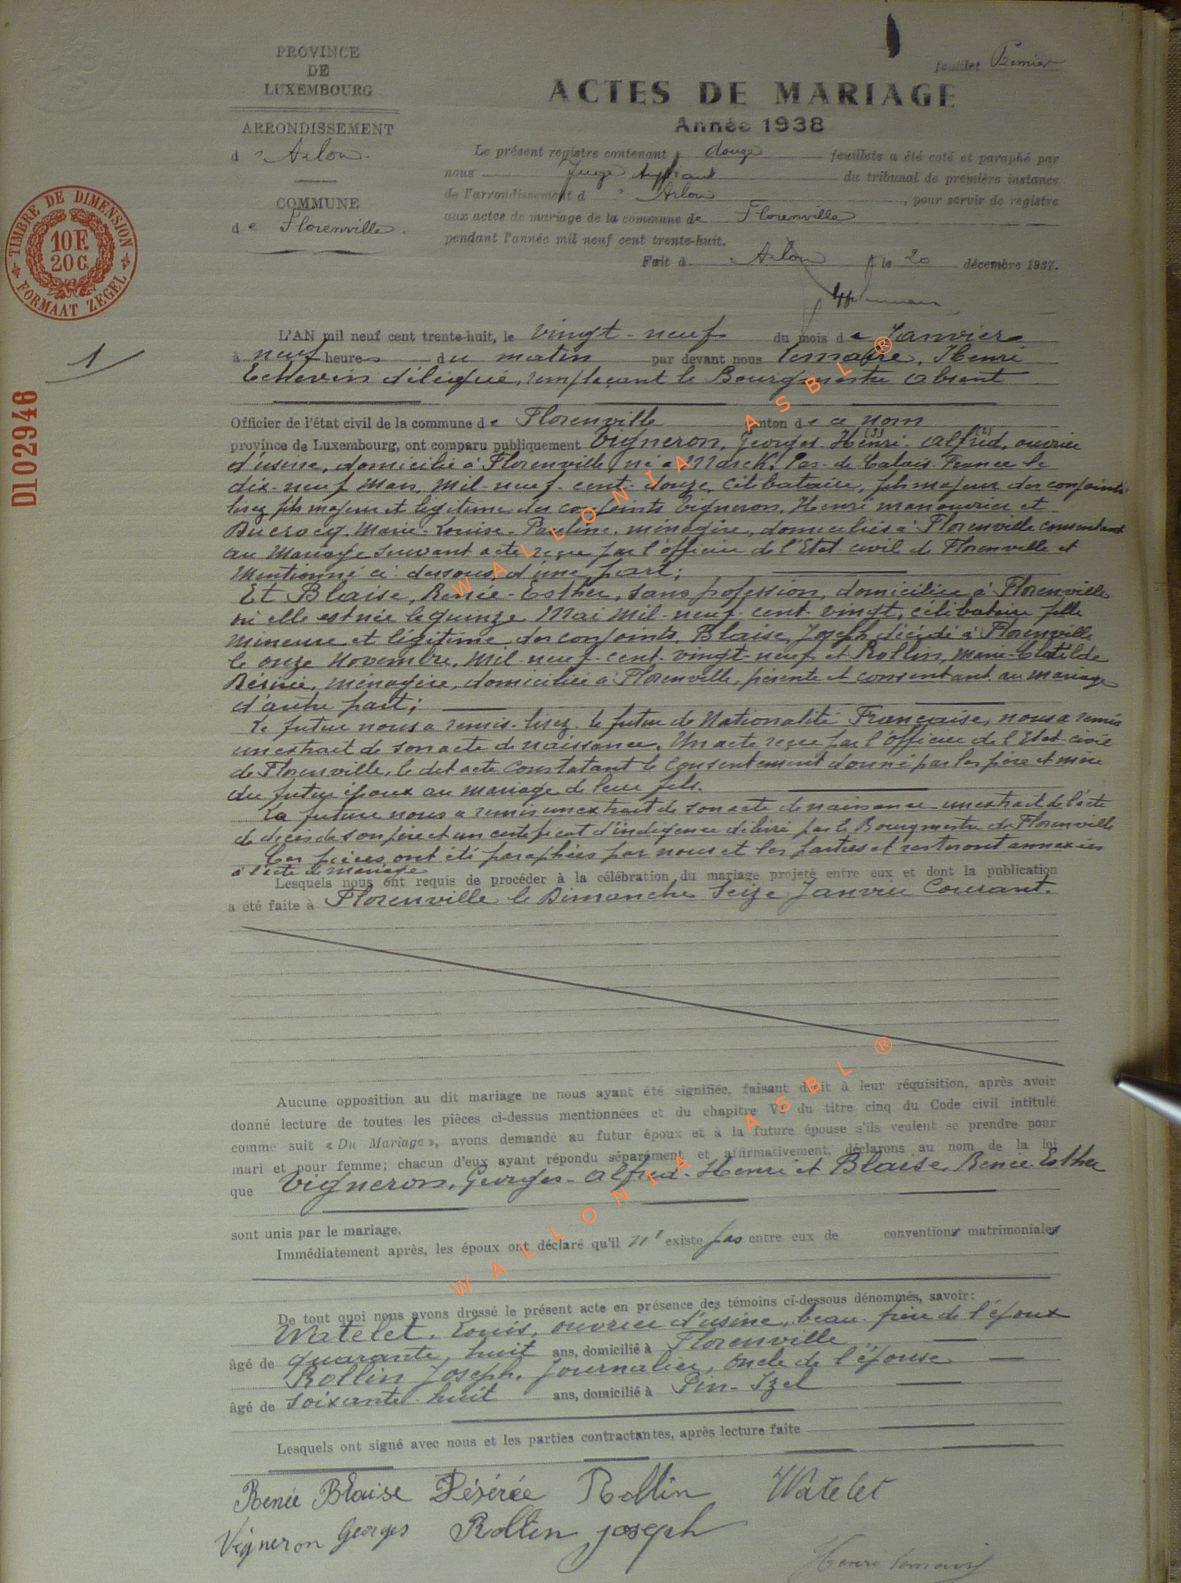 PROVINCE
DE
LUXEMBOURG
ARRONDISSEMENT
d' Arlon.
COMMUNE
de Florenville.
feuillet Premier
ACTES DE MARIAGE
Année 1938
Le présent registre contenant douze feuillets a été coté et paraphé par
nous Juge du tribunal de première instance
de l'arrondissement d' Arlon, pour servir de registre
aux actes de mariage de la commune de Florenville
pendant l'année mil neuf cent trente-huit.
Fait à Arlon le 20 décembre 1937.
TIMBRE DE DIMENSION
10 F.
20 C.
FORMAAT ZEGEL
1
D102946
L'AN mil neuf cent trente-huit, le vingt-neuf du mois de Janvier
à neuf heures du matin par devant nous Lemaire, Henri
Echevin délégué, remplaçant le Bourgmestre absent
Officier de l'état civil de la commune de Florenville canton de ce nom
province de Luxembourg, ont comparu publiquement Vigneron, Georges-Henri (1)-Alfred (2), ouvrier
d'usine, domicilié à Florenville, né à Marck. Pas-de-Calais. France le
dix-neuf Mars, mil-neuf-cent-douze, célibataire, fils majeur des conjoints
lisez fils majeur et légitime des conjoints Vigneron, Henri manouvrier et
Ducrocq, Marie-Louise-Pauline, ménagère, domiciliés à Florenville consentant
au Mariage suivant acte reçu par l'officier de l'Etat civil de Florenville et
Mentionné ci-dessous, d'une part;
Et Blaise, Renée-Esther, sans profession, domiciliée à Florenville
où elle est née le quinze Mai mil-neuf-cent-vingt, célibataire fille
mineure et légitime des conjoints Blaise, Joseph décédé à Florenville
le onze Novembre, mil-neuf-cent-vingt-neuf et Rollin, Marie-Clotilde
Désirée, ménagère, domiciliée à Florenville, présente et consentant au mariage
d'autre part;
Le futur nous a remis-lisez-le futur de Nationalité Française, nous a remis
un extrait de son acte de naissance. Un acte reçu par l'officier de l'Etat-civil
de Florenville, le dit acte constatant le consentement donné par les père et mère
du futur époux au mariage de leur fils.
La future nous a remis un extrait de son acte de naissance un extrait de l'acte
de décès de son père et un certificat d'indigence délivré par le Bourgmestre de Florenville
Ces pièces ont été paraphées par nous et les parties et resteront annexées
à l'acte de mariage
Lesquels nous ont requis de procéder à la célébration du mariage projeté entre eux et dont la publication
a été faite à Florenville le Dimanche Seize Janvier Courant.
Aucune opposition au dit mariage ne nous ayant été signifiée, faisant droit à leur réquisition, après avoir
donné lecture de toutes les pièces ci-dessus mentionnées et du chapitre VI du titre cinq du Code civil intitulé
comme suit « Du Mariage », avons demandé au futur époux et à la future épouse s'ils veulent se prendre pour
mari et pour femme; chacun d'eux ayant répondu séparément et affirmativement, déclarons au nom de la loi
que Vigneron, Georges-Alfred-Henri et Blaise, Renée-Esther
sont unis par le mariage.
Immédiatement après, les époux ont déclaré qu'il n'existe pas entre eux de conventions matrimoniales
De tout quoi nous avons dressé le présent acte en présence des témoins ci-dessous dénommés, savoir:
Watelet, Louis, ouvrier d'usine, beau-frère de l'époux
âgé de quarante-huit ans, domicilié à Florenville
Rollin Joseph, Journalier, oncle de l'épouse
âgé de soixante-huit ans, domicilié à Pin-Izel
Lesquels ont signé avec nous et les parties contractantes, après lecture faite
Renée Blaise Désirée Rollin Watelet
Vigneron Georges Rollin joseph
Henri Lemaire
WALLONIA ASBL ®
WALLONIA ASBL ®